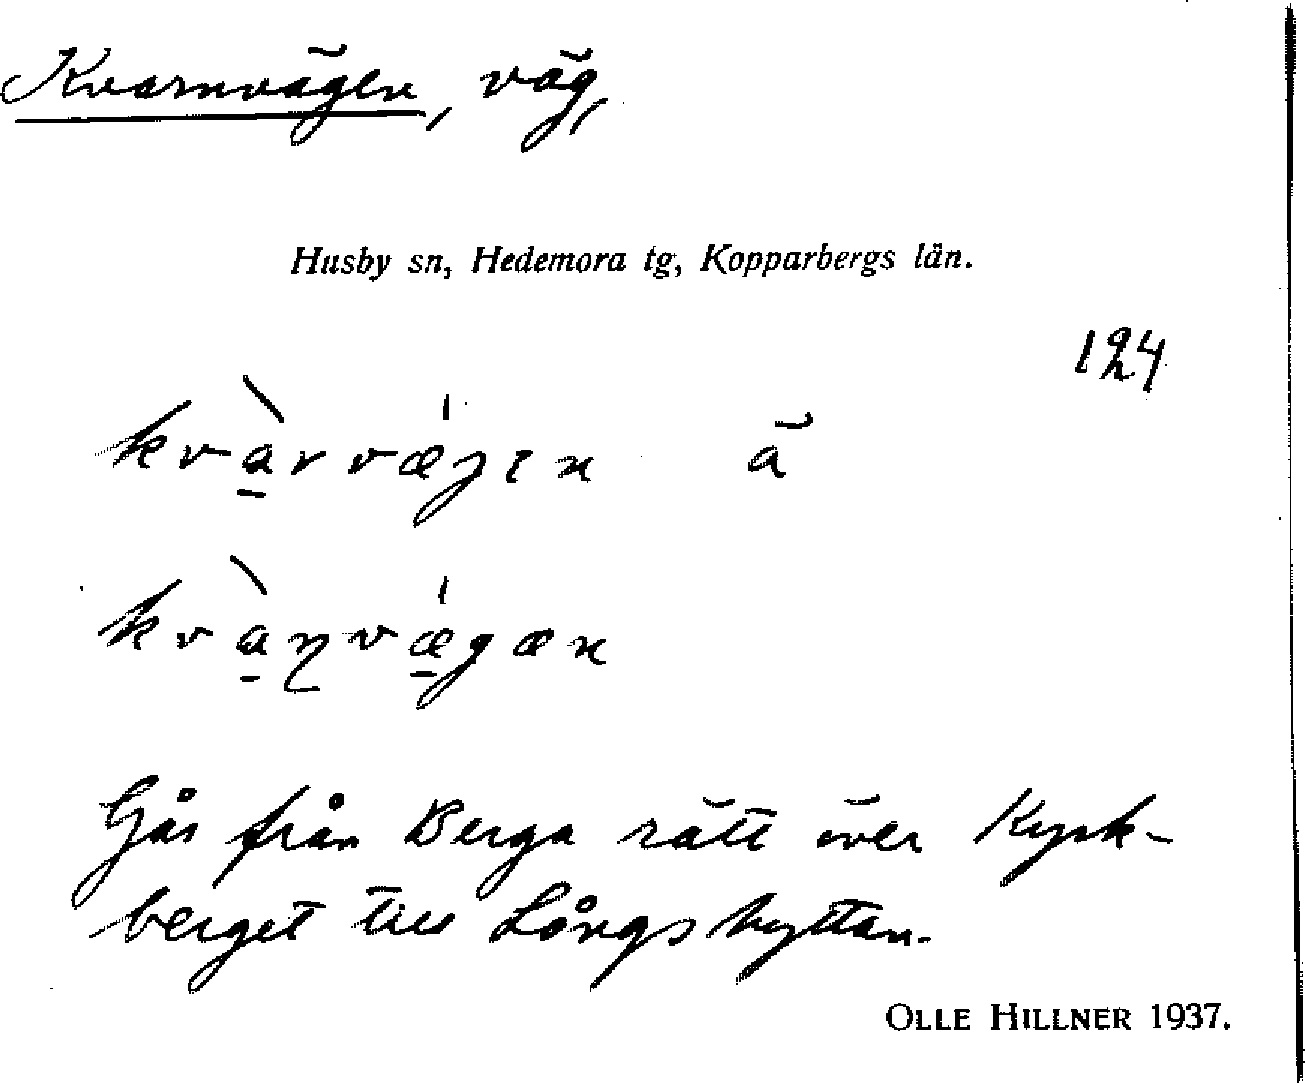 Kvarnvägen, väg,
Husby sn, Hedemora tg, Kopparbergs län.
124
kvàrvǽgen ä
kvàɳvǽgæn
Går från Berga rätt över Kyrk-
berget till Långshyttan.
OLLE HILLNER 1937.